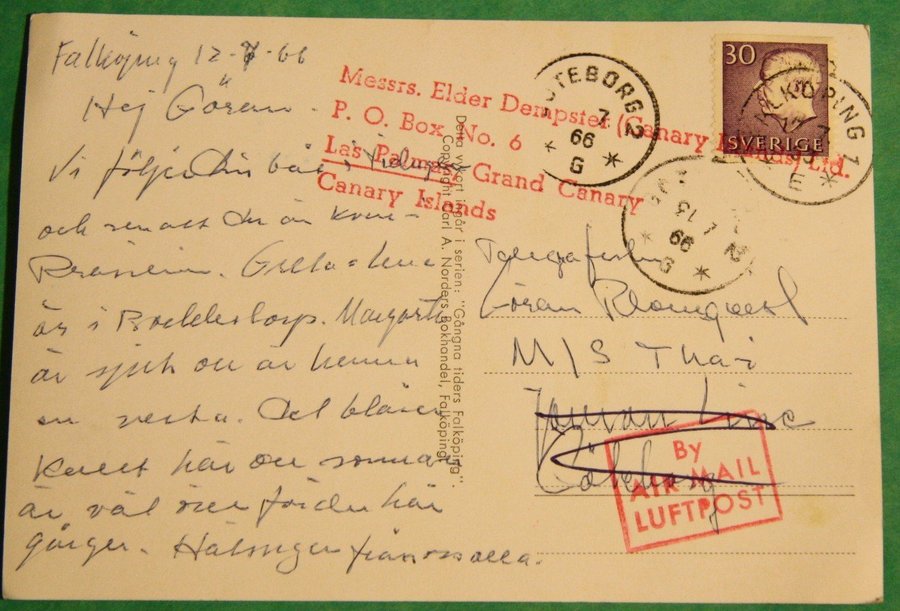 Falköping 12-7-66
Hej Göran.
Vi följer Din båt i
och ser att Du är
Brasilien.
är i Boddestorp. Margareta
är sjuk och är hemma
en vecka. Det blåser
kallt här och sommaren
är väl över för den här
gången. Hälsningar från oss alla.
Messrs. Elder Dempster (Canary Islands) Ltd.
P. O. Box No. 6
Las Palmas, Grand Canary
Canary Islands
Detta vykort ingår i serien: "Gångna tiders Falköping"
Copyright: Karl A. Norders Bokhandel, Falköping
30
SVERIGE
GÖTEBORG 2
7
66
G
FALKÖPING 1
12 7
E
13
7
66
G
Telegrafisten
Göran Blomqvist
M/S Thai
Göteborg
By
AIR MAIL
LUFTPOST